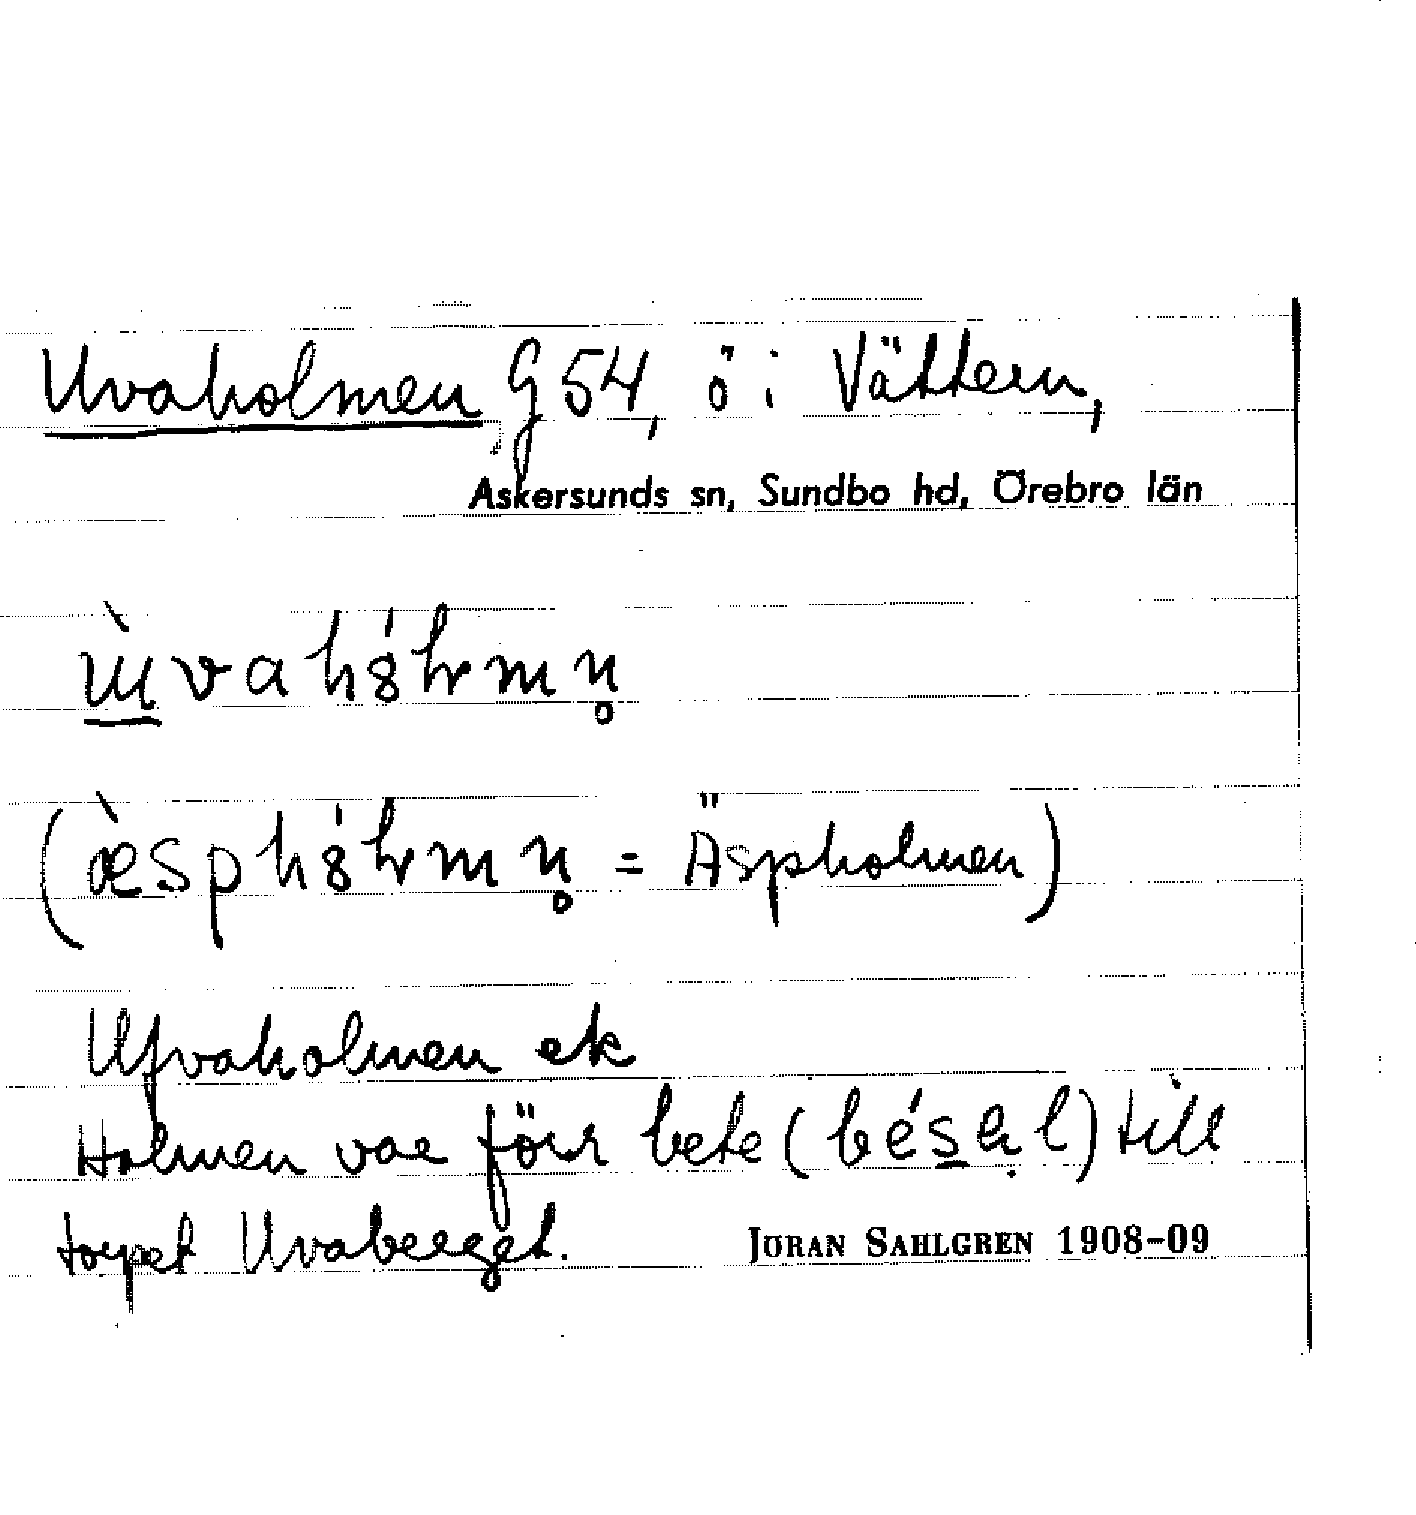 Uvaholmen G 54, ö i Vättern,
Askersunds sn, Sundbo hd, Örebro län
= Äspholmen)
Ufvaholmen ek
Holmen var förr bete till
torpet Uvaberget.
JÖRAN SAHLGREN 1908-09